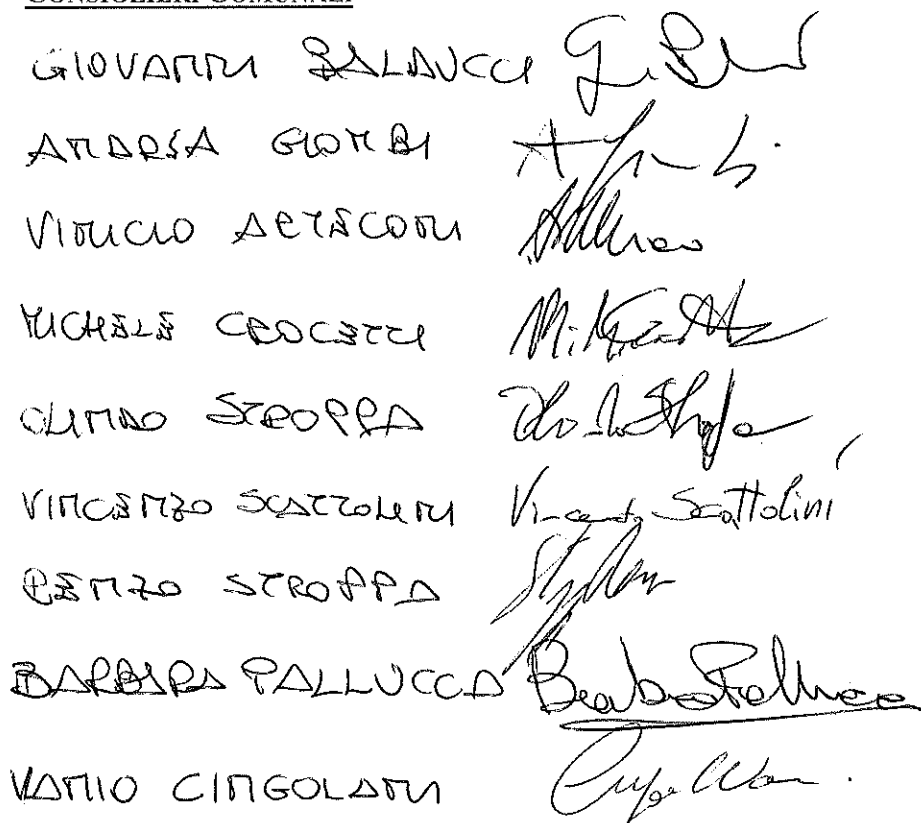 CONSIGLIERI COMUNALI
GIOVANNI BALDUCCI
ANDREA GIOMBI
VINICIO ARTECONI
MICHELE CROCETTI
OLINDO STROPPA
VINCENZO SCATTOLINI Vincenzo Scattolini
RENZO STROPPA
BARBARA PALLUCCA Barbara Pallucca
VANIO CINGOLANI